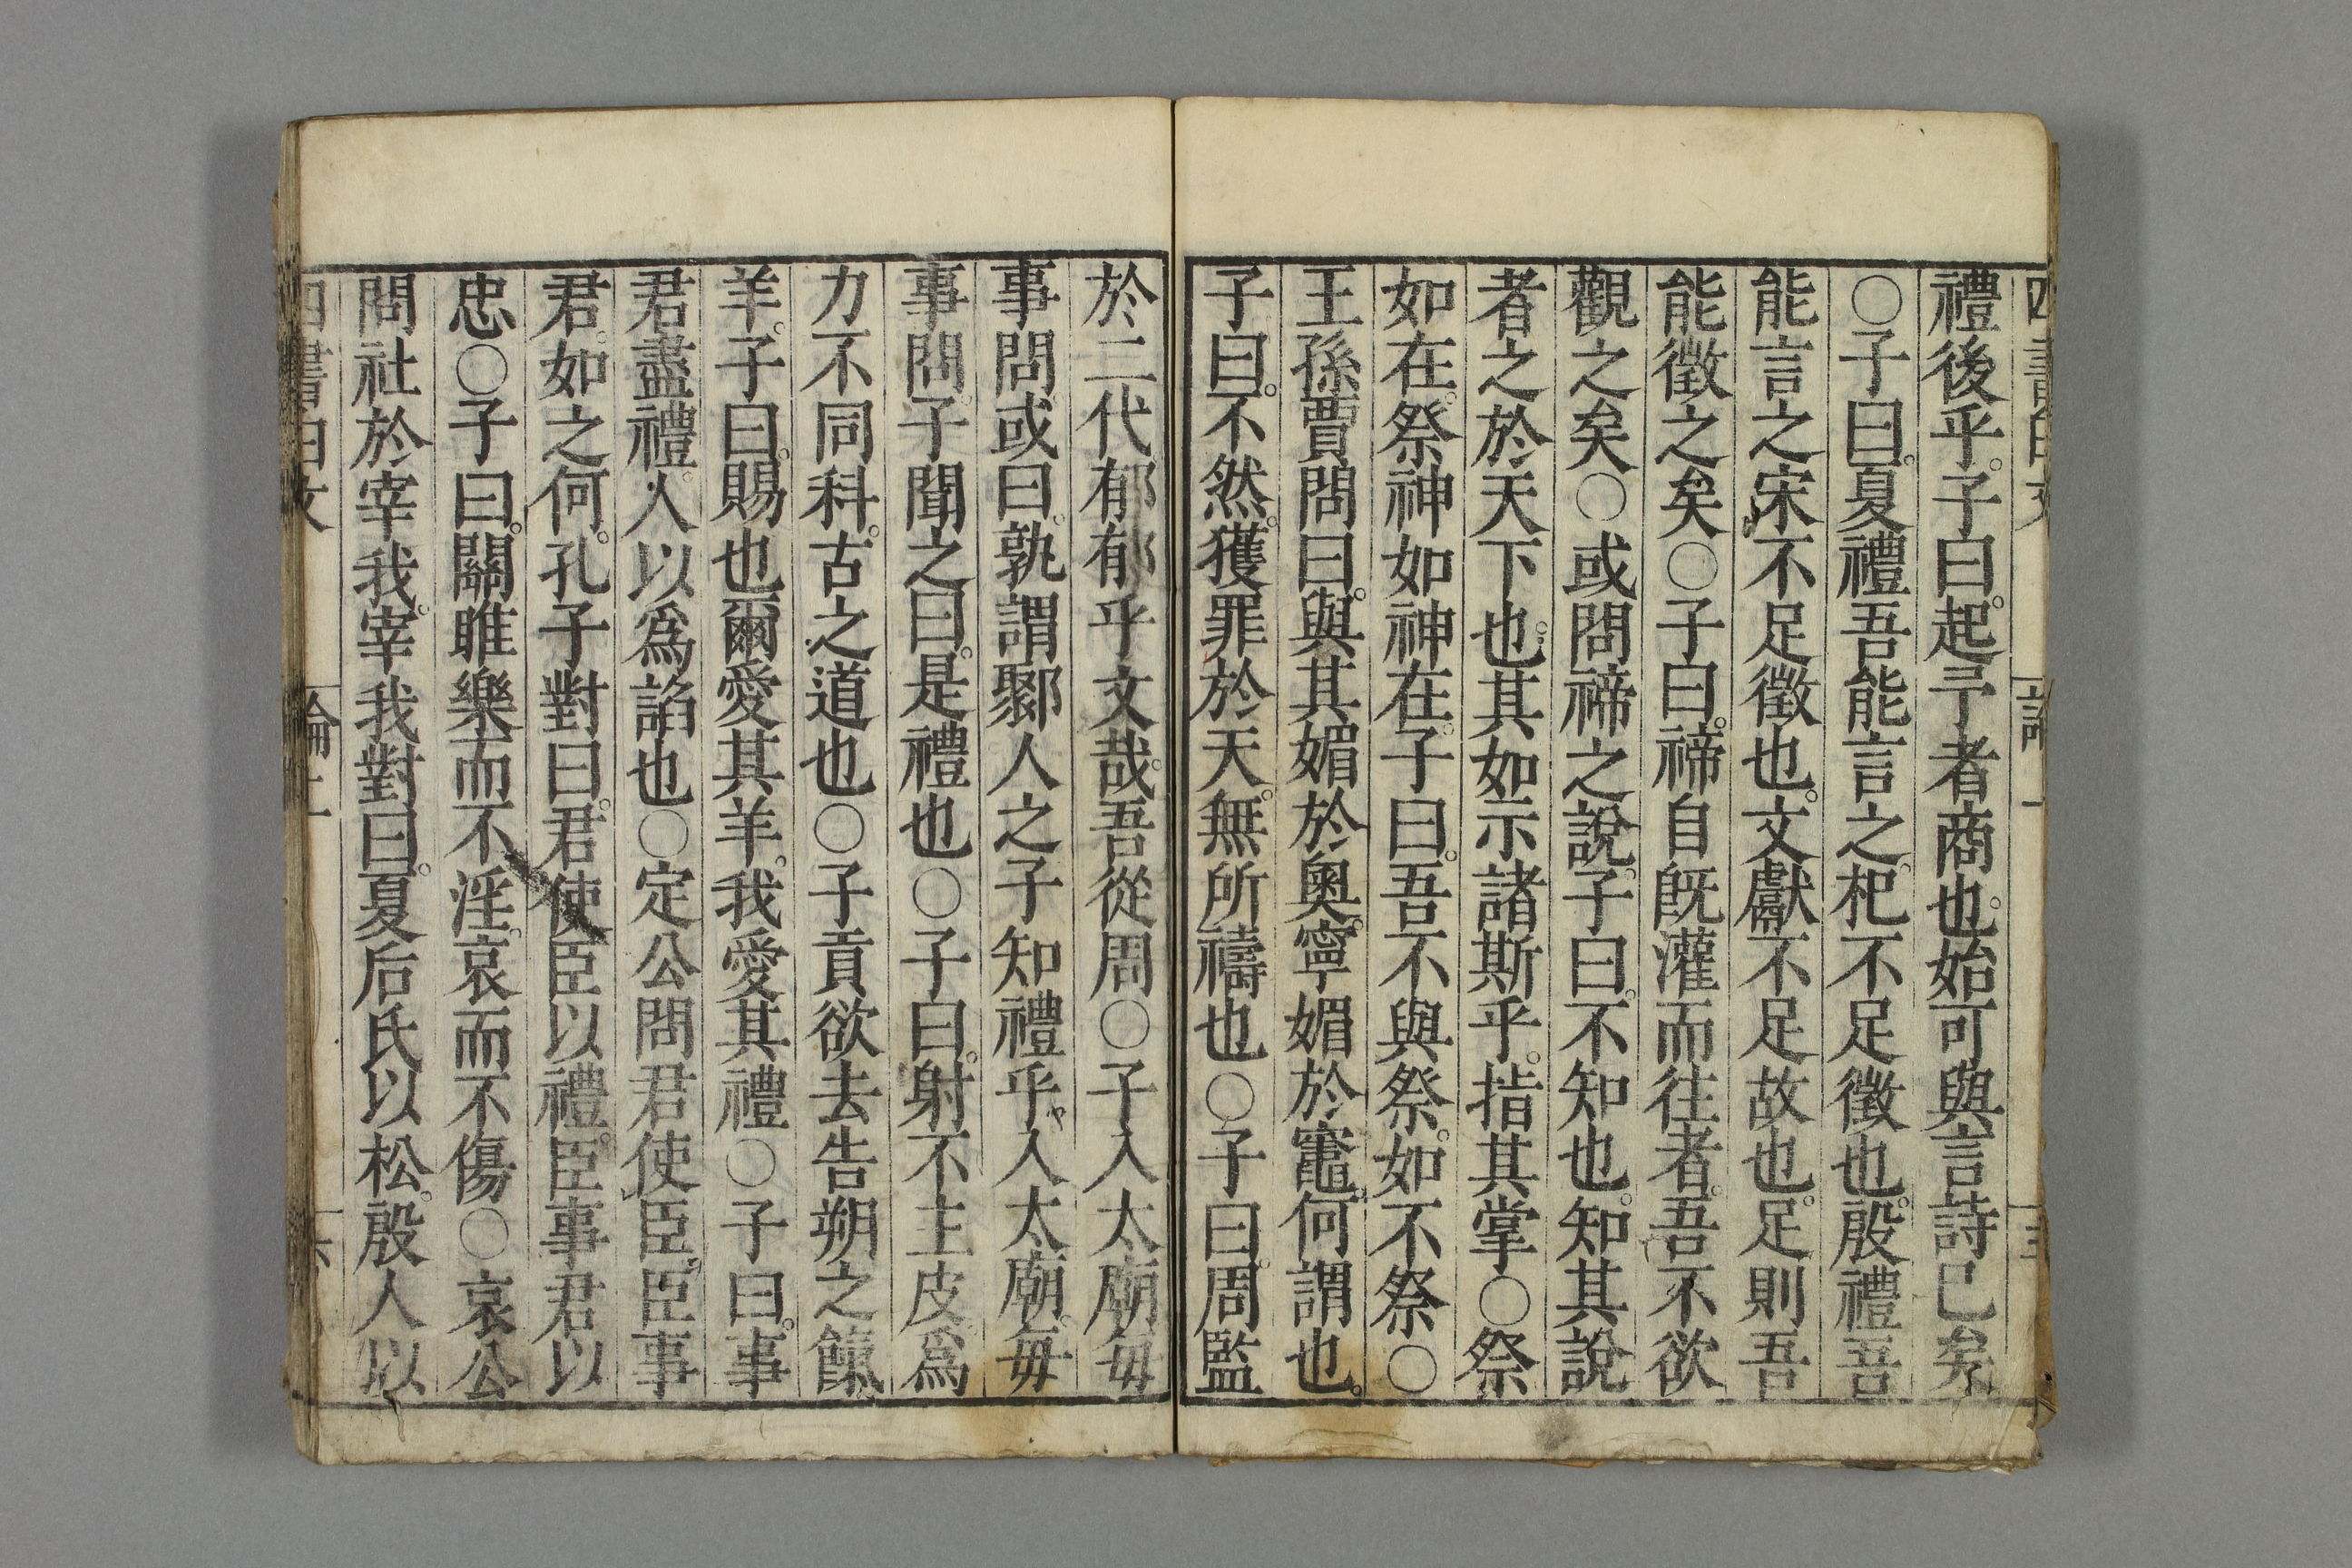 四書白文　論上　五
禮後乎。子曰。起予者商也。始可與言詩已矣
○子曰。夏禮吾能言之。杞不足徵也。殷禮吾
能言之宋不足徵也。文獻不足故也。足則吾
能徵之矣○子曰。禘自既灌而往者。吾不欲
觀之矣○或問禘之說。子曰。不知也。知其說
者之於天下也。其如示諸斯乎。指其掌○祭
如在。祭神如神在。子曰。吾不與祭。如不祭○
王孫賈問曰。與其媚於奧。寧媚於竈。何謂也。
子曰。不然。獲罪於天。無所禱也○子曰。周監
於二代郁郁乎文哉。吾從周○子入太廟毎
事問或曰。孰謂鄹人之子知禮乎入太廟。毎
事問。子聞之曰。是禮也○子曰。射不主皮。爲
力不同科。古之道也○子貢欲去告朔之餼
羊。子曰。賜也爾愛其羊。我愛其禮○子曰。事
君盡禮。人以爲諂也○定公問君使臣。臣事
君。如之何。孔子對曰。君使臣以禮。臣事君以
忠○子曰。關雎樂而不淫。哀而不傷○哀公
問社於宰我。宰我對曰。夏后氏以松。殷人以
四書白文　論上　六